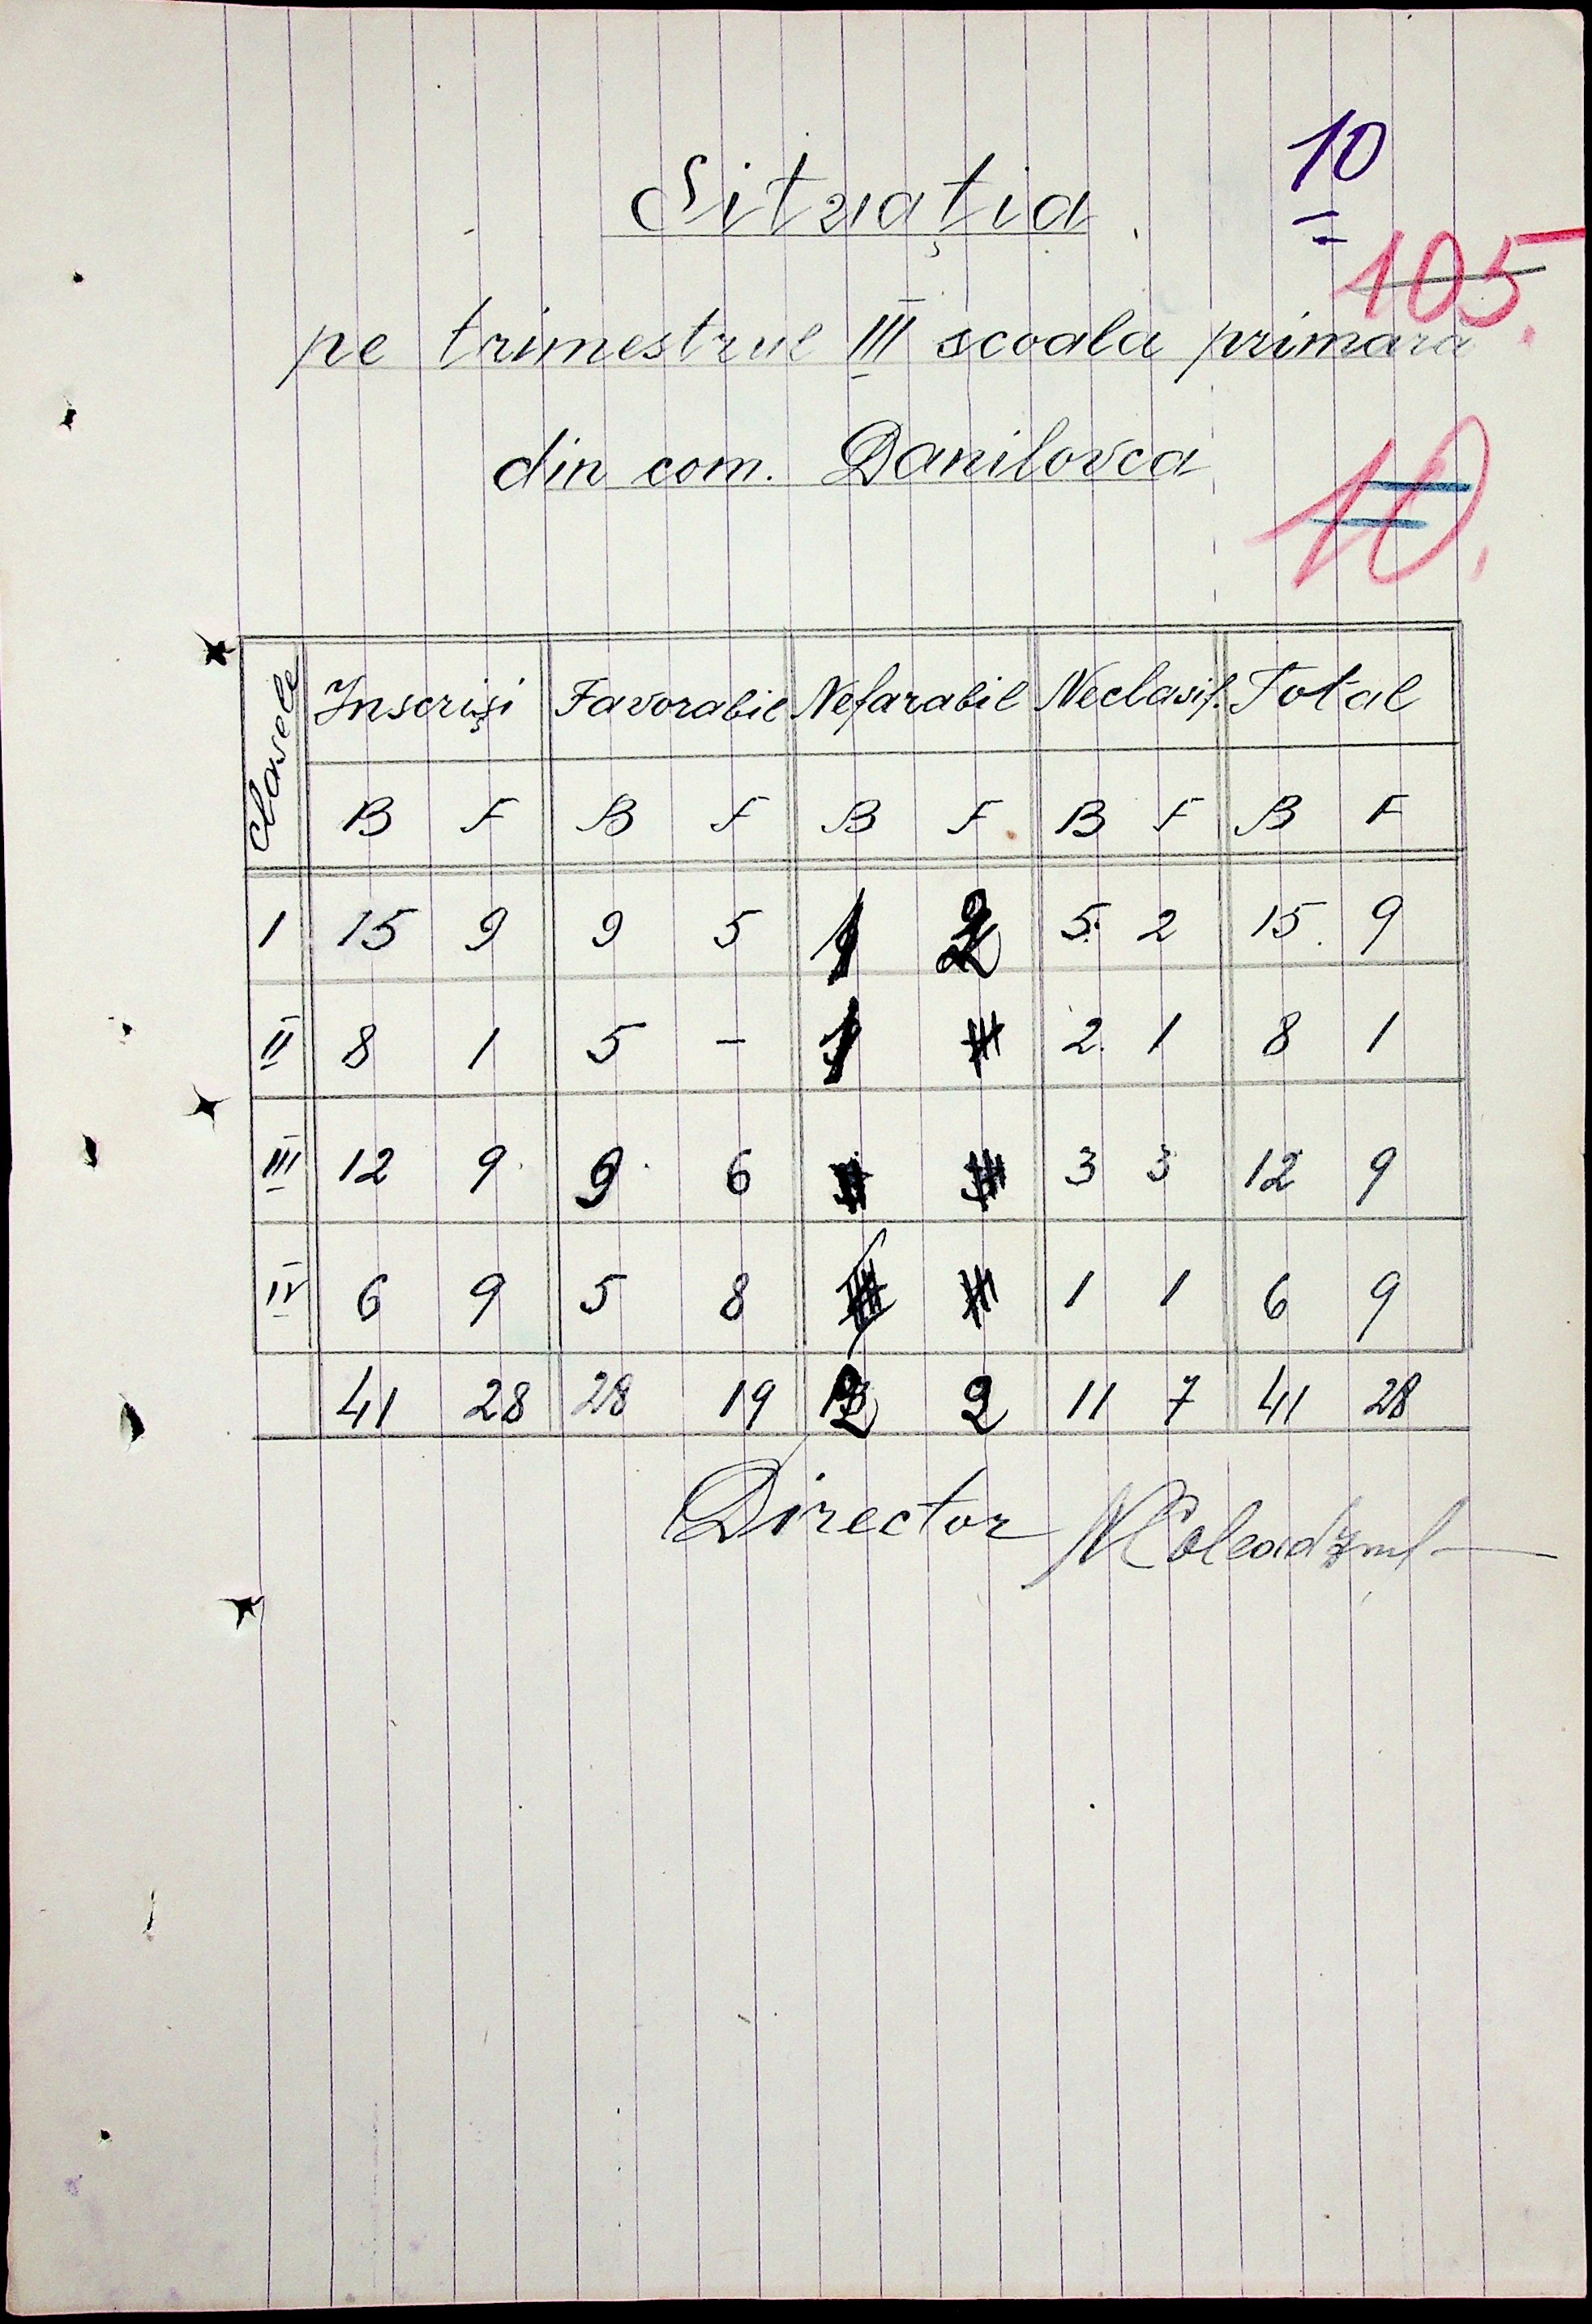 10
Situația
105.
pe trimestrul III scoala primara
din com. Danilovca
10.
Clasele Inscriși Favorabil Nefarabil Neclasif. Total
B F B F B F B F B F
I 15 9 9 5 1 2 5 2 15 9
II 8 1 5 - 1 2 1 8 1
III 12 9 9 6 3 3 12 9
IV 6 9 5 8 1 1 6 9
41 28 28 19 2 2 11 7 41 28
Director